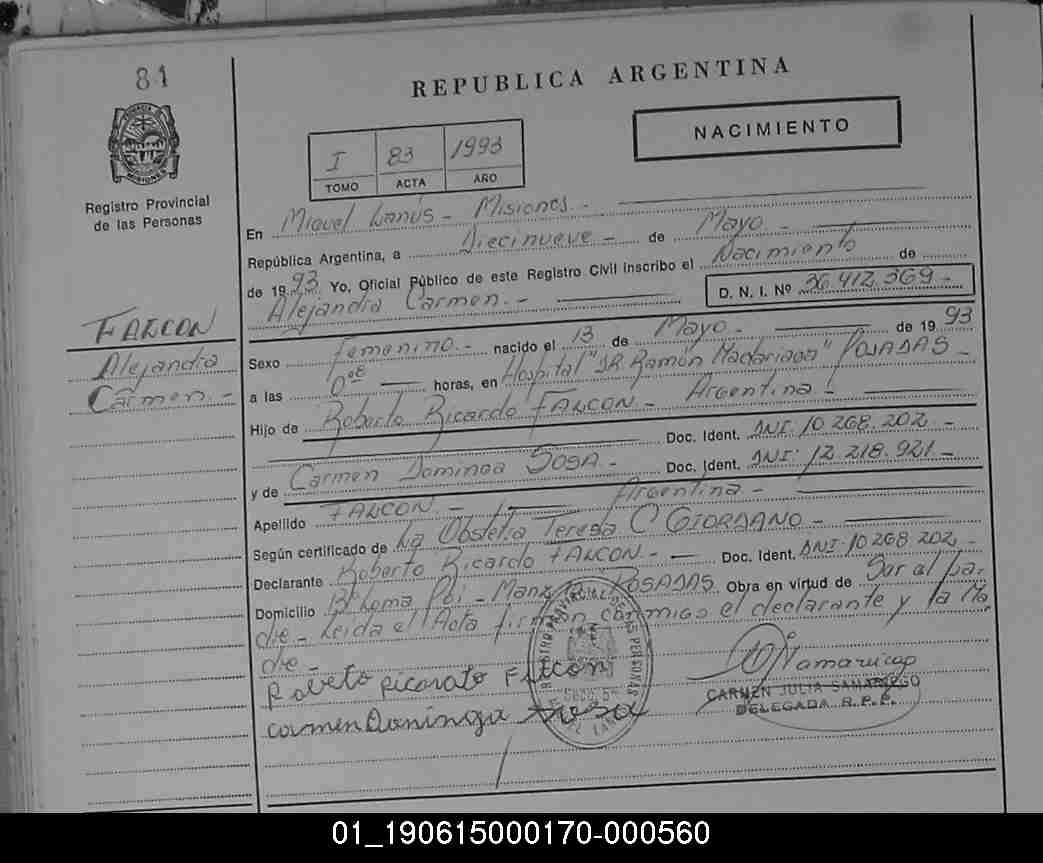 81
REPUBLICA ARGENTINA
NACIMIENTO
I 83 1993
TOMO ACTA AÑO
Registro Provincial
de las Personas
En Miguel Lanús - Misiones -
República Argentina, a Diecinueve - de Mayo -
de 1993 Yo, Oficial Público de este Registro Civil inscribo el Nacimiento de
Alejandra Carmen. - D. N. I. Nº 36.412.369 -
FALCON
Alejandra
Carmen. -
Sexo femenino. - nacido el 13 de Mayo - de 1993
a las 0 horas, en Hospital "DR. Ramón Madariaga" POSADAS -
Hijo de Roberto Ricardo FALCON - Argentina -
Doc. Ident. DNI. 10 268.202. -
y de Carmen Dominga SOSA - Doc. Ident. DNI: 12.218.921 -
Apellido FALCON. - Argentina -
Según certificado de La Obstetra Teresa C GIORDANO -
Declarante Roberto Ricardo FALCON - Doc. Ident. DNI 10 268 202 -
Domicilio POSADAS Obra en virtud de Ser el pa-
dre - Leida el Acta firman conmigo el declarante y la Ma
dre -
Roberto Ricardo Falcon
Carmen Dominga Sosa
CARMEN JULIA SAMANIEGO
DELEGADA R.P.P.
01_190615000170-000560